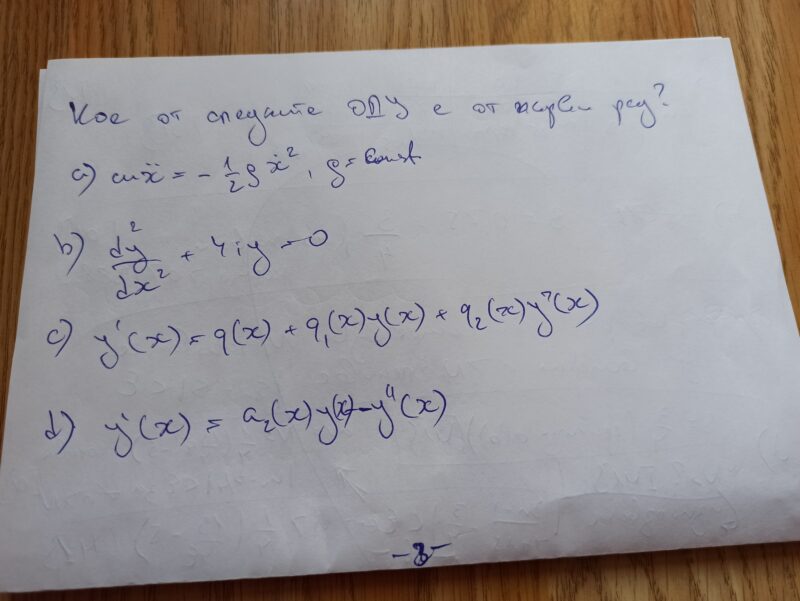 Кое от следните ОДУ е от първи ред?
a) mẍ = - 1/2 ρ ẋ², ρ = const
b) dy²/dx² + 4iy = 0
c) y'(x) = q(x) + q₁(x)y(x) + q₂(x)y"(x)
d) y'(x) = a₂(x)y(x) - y"(x)
-8-